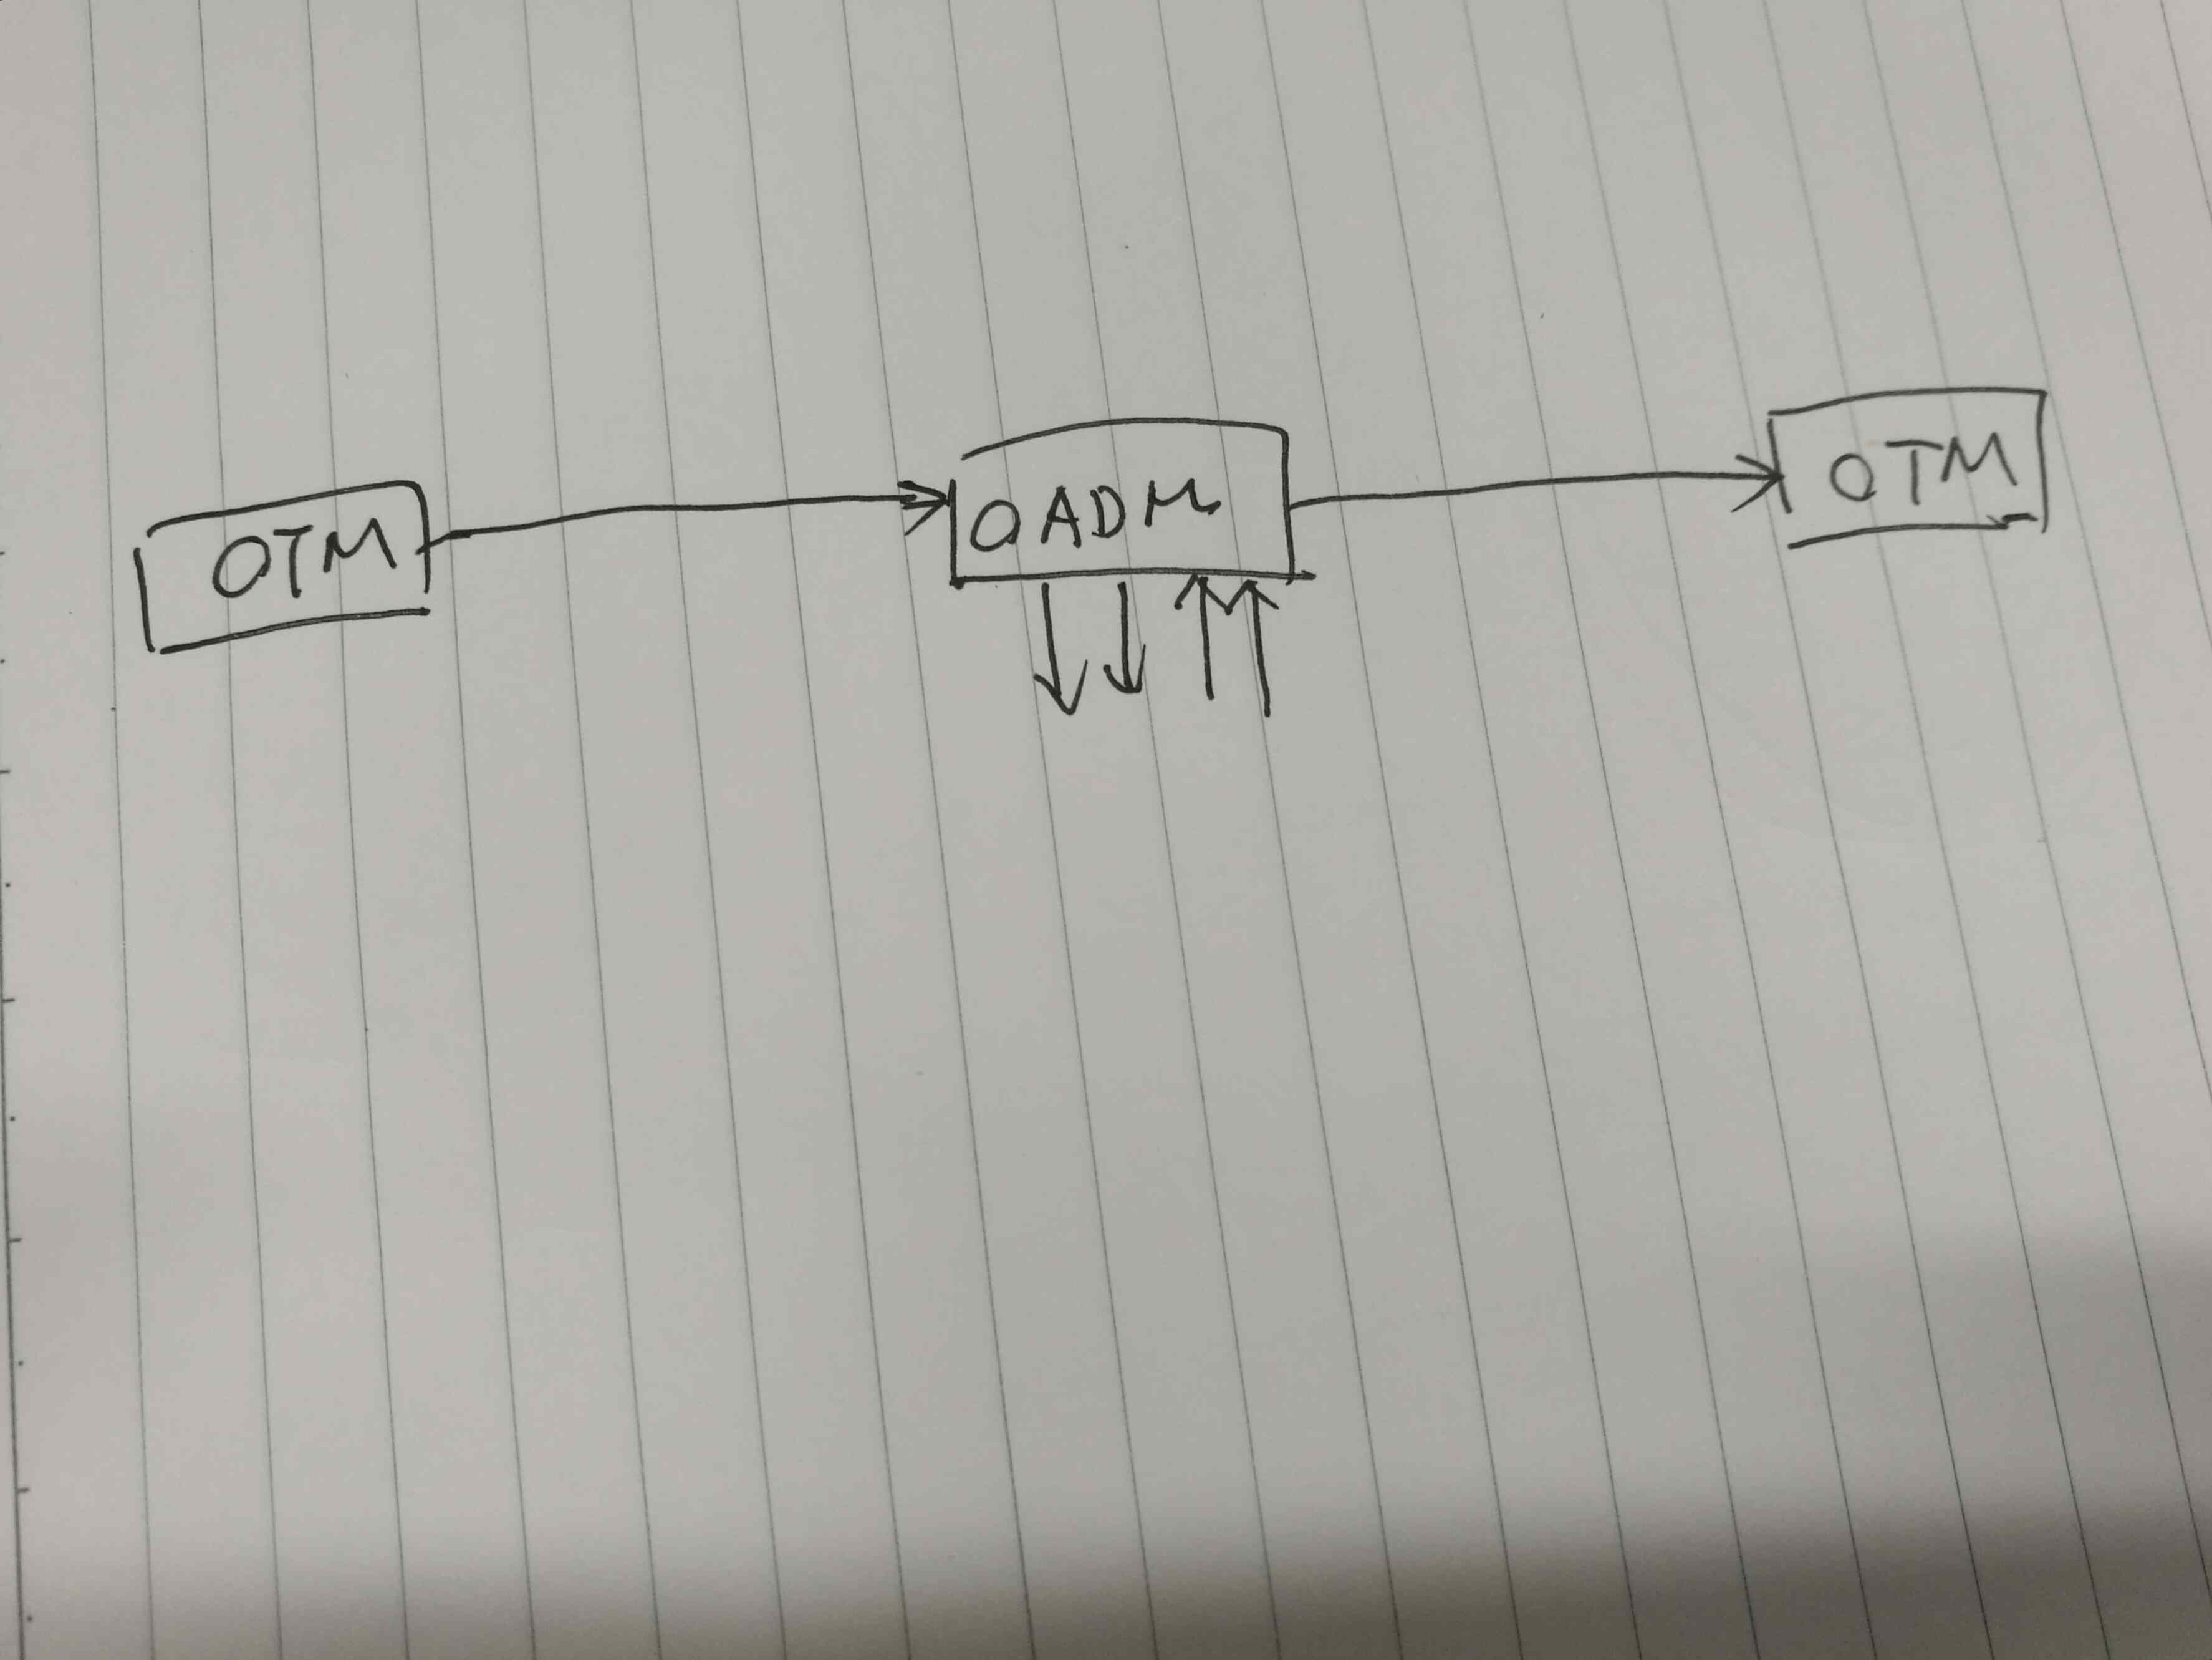 OTM
OADM
OTM